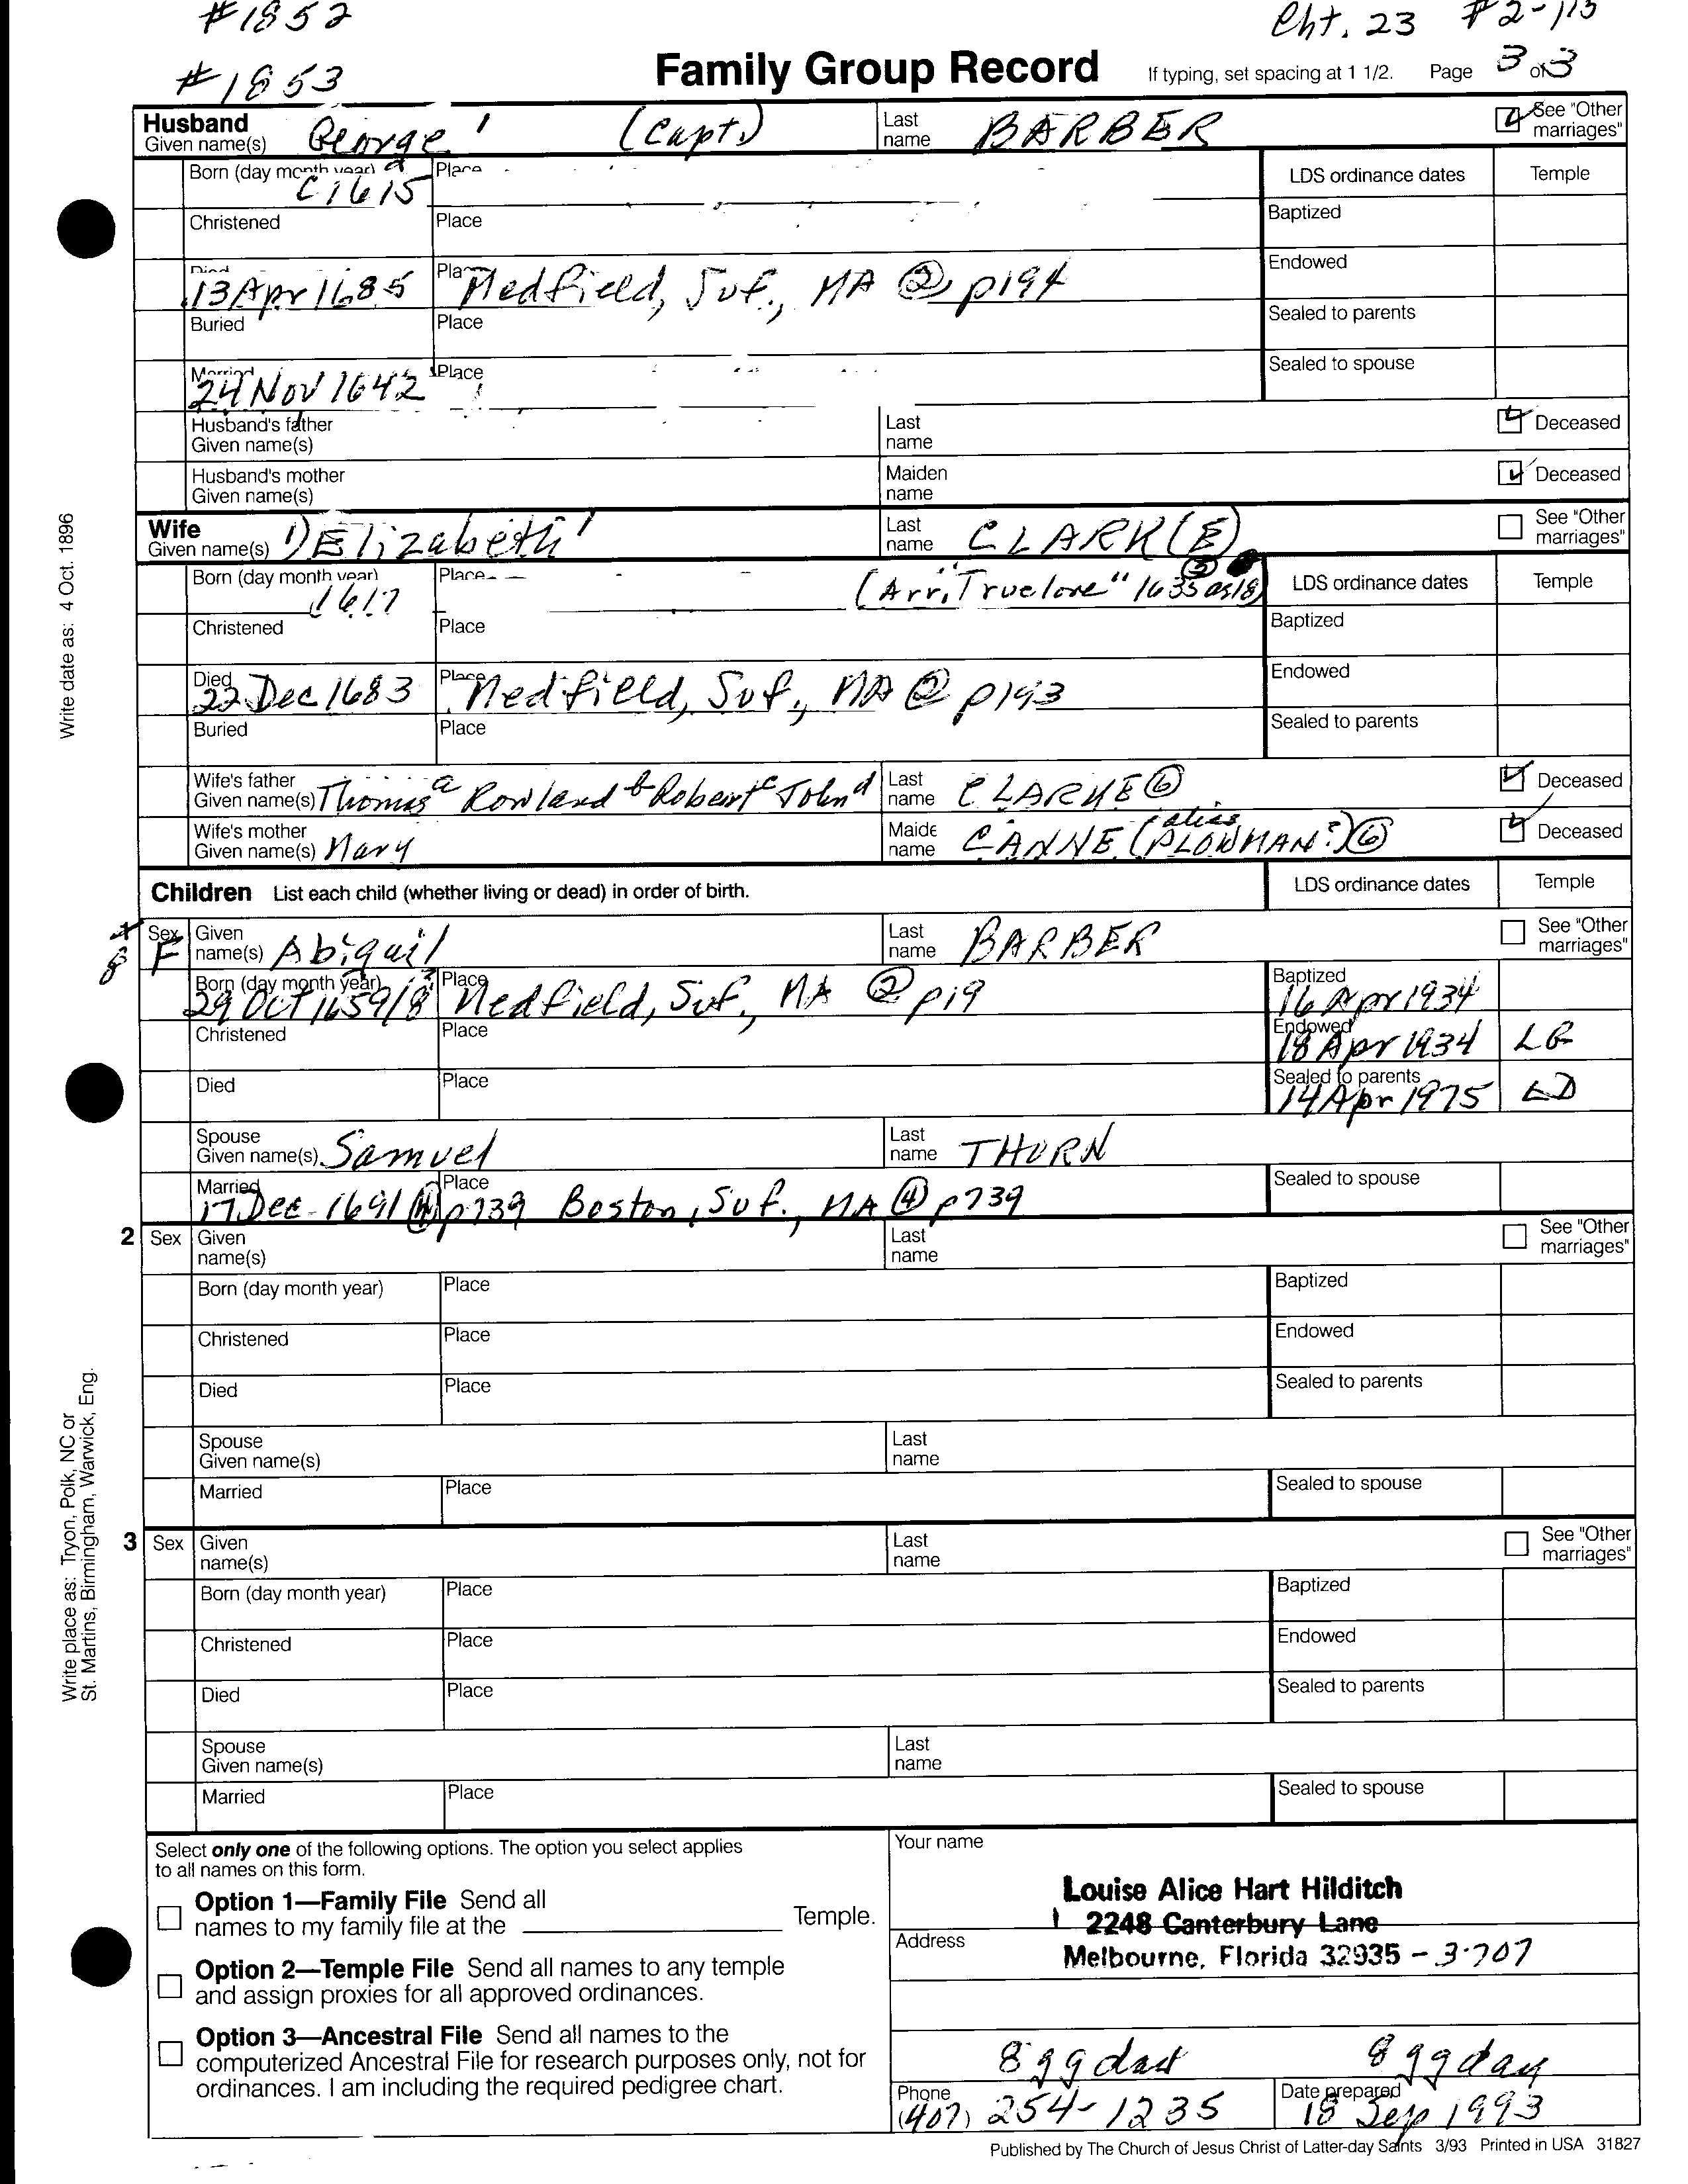 #1852 Cht. 23 #2-113
#1853 Family Group Record If typing, set spacing at 1 1/2. Page 3 of 3
Husband
Given name(s) George 1 (Capt.) Last name BARBER See "Other marriages"
Born (day month year) C1615 Place LDS ordinance dates Temple
Christened Place Baptized
Died 13 Apr 1685 Place Medfield, Suf., MA ② p194 Endowed
Buried Place Sealed to parents
Married 24 Nov 1642 Place Sealed to spouse
Husband's father Given name(s) Last name Deceased
Husband's mother Given name(s) Maiden name Deceased
Wife
Given name(s) 1) Elizabeth 1 Last name CLARK(E) See "Other marriages"
Born (day month year) 1617 Place (Arr. "Truelove" 1635 as 18) LDS ordinance dates Temple
Christened Place Baptized
Died 22 Dec 1683 Place Medfield, Suf., MA ② p193 Endowed
Buried Place Sealed to parents
Wife's father Given name(s) Thomas a Rowland b Robert c John d Last name CLARKE ⑥ Deceased
Wife's mother Given name(s) Mary Maiden name CANNE (alias PLOWMAN?) ⑥ Deceased
Children List each child (whether living or dead) in order of birth. LDS ordinance dates Temple
8 Sex F Given name(s) Abigail Last name BARBER See "Other marriages"
Born (day month year) 29 Oct 1659/8 Place Medfield, Suf., MA ② p19 Baptized 16 Apr 1934
Christened Place Endowed 18 Apr 1934
Died Place Sealed to parents 14 Apr 1975
Spouse Given name(s) Samuel Last name THORN
Married 17 Dec 1691 ④ p739 Place Boston, Suf., MA ④ p739 Sealed to spouse
2 Sex Given name(s) Last name See "Other marriages"
Born (day month year) Place Baptized
Christened Place Endowed
Died Place Sealed to parents
Spouse Given name(s) Last name
Married Place Sealed to spouse
3 Sex Given name(s) Last name See "Other marriages"
Born (day month year) Place Baptized
Christened Place Endowed
Died Place Sealed to parents
Spouse Given name(s) Last name
Married Place Sealed to spouse
Select only one of the following options. The option you select applies
to all names on this form.
Option 1—Family File Send all
names to my family file at the Temple.
Option 2—Temple File Send all names to any temple
and assign proxies for all approved ordinances.
Option 3—Ancestral File Send all names to the
computerized Ancestral File for research purposes only, not for
ordinances. I am including the required pedigree chart.
Your name
Louise Alice Hart Hilditch
2248 Canterbury Lane
Address
Melbourne, Florida 32935 - 3707
8 gg dau 8 gg dau
Phone (407) 254-1235 Date prepared 18 Sep 1993
Published by The Church of Jesus Christ of Latter-day Saints 3/93 Printed in USA 31827
Write date as: 4 Oct. 1896
Write place as: Tryon, Polk, NC or
St. Martins, Birmingham, Warwick, Eng.